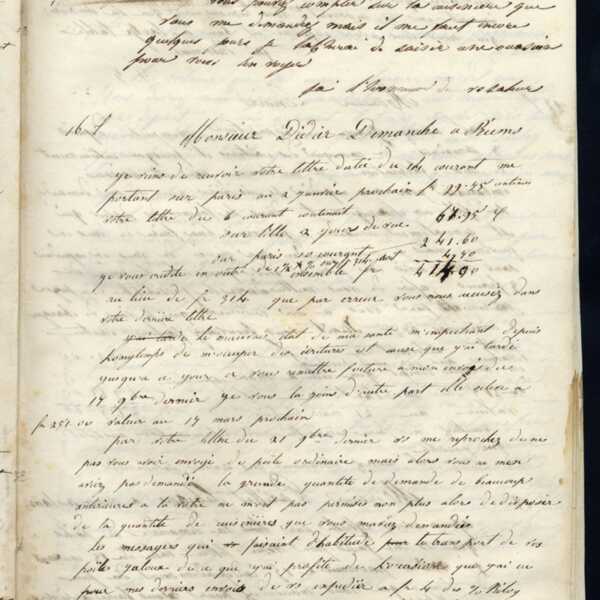 vous pouvez compter sur la cuisiniere que
vous me demandez mais il me faut encore
quelques jours je tacherai de saisir une occasion
pour vous l'envoyer
j'ai l'honneur de vs saluer
16 d
Monsieur Didier-Demanche a Reims
je viens de recevoir votre lettre datée du 14 courant me
portant sur paris au 2 janvier prochain fr 99.45
votre lettre du 6 courant contenait
sur lille 2 jours de vue 67.95
sur paris 20 courant 241.60
4.90
je vous credite en outre de 1½ % sur 314, soit
ensemble fr 414.90
au lieu de fr 314 que par erreur vous nous accusez dans
votre derniere lettre
le mauvais état de ma santé m'empechant depuis
longtemps de m'occuper des écriture est cause que j'ai tardé
jusqu'a a jour a vous remettre facture a mon envoi du
17 9bre dernier je vous la joins d'autre part elle eleve a
fr 251 valeur au 17 mars prochain
par votre lettre du 21 9bre dernier vs me reprochez de ne
pas vous avoir envoyé de poile ordinaire mais alors vous ne m'en
aviez pas demandé la grande quantite de demande de beaucoup
antérieures a la votre ne m'ont pas permises non plus alors de disposer
de la quantité de cuisinieres que vous m'avez demandées
les messagers qui faisaient d'habitude le transport de vos
poile jaloux de ce que j'ai profité de l'occasion que j'ai eu
pour mes derniers envois de vs expedier a fr 4 des %